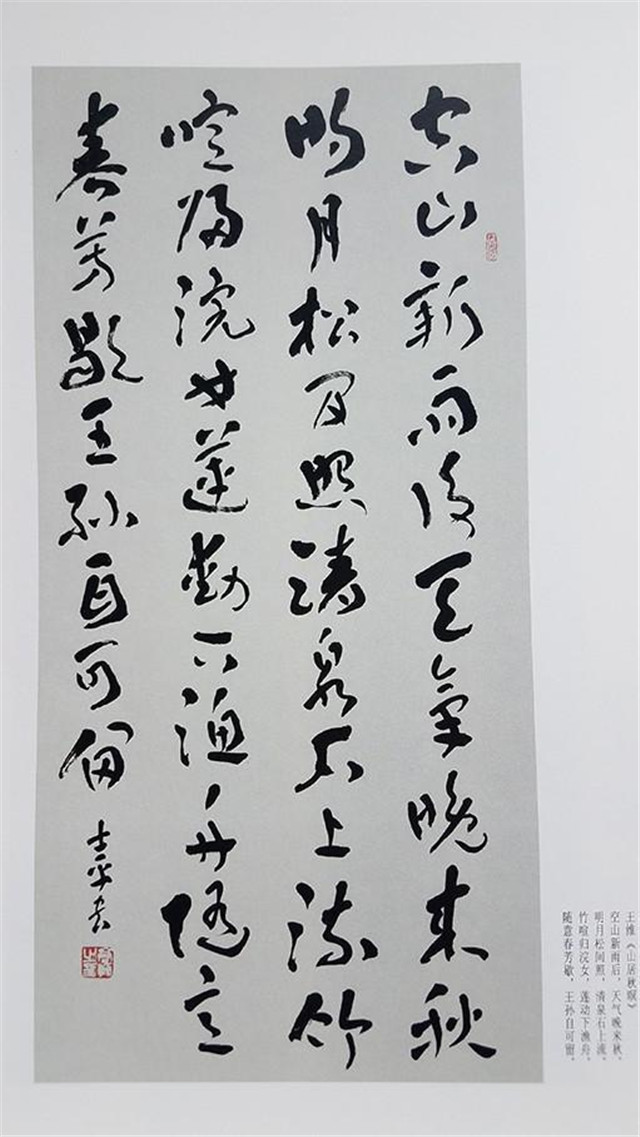 空山新雨後天氣晚来秋
明月松間照清泉石上流竹
喧歸浣女蓮動下漁舟隨意
春芳歇王孫自可留
王维《山居秋暝》
空山新雨后，天气晚来秋。
明月松间照，清泉石上流。
竹喧归浣女，莲动下渔舟。
随意春芳歇，王孙自可留。